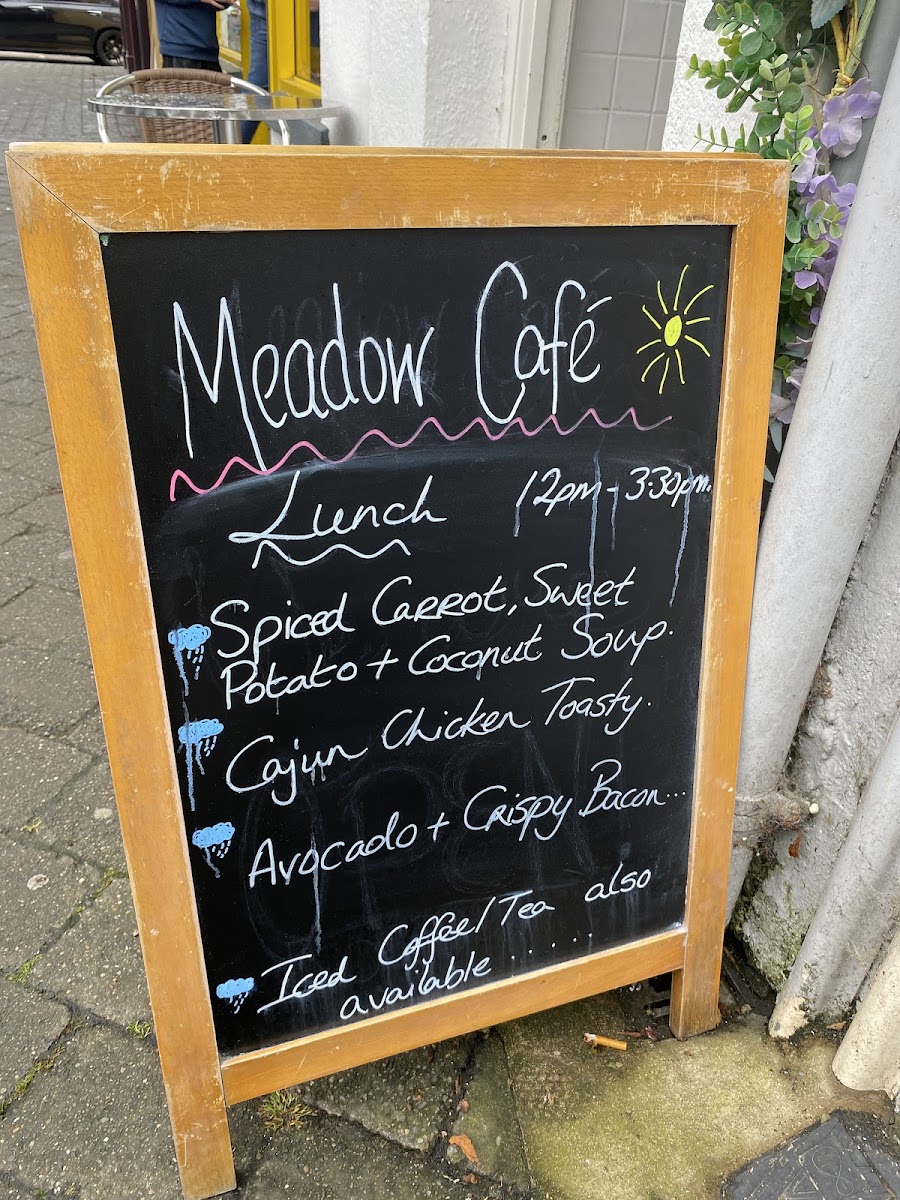 Meadow Café
Lunch 12pm - 3.30pm.
Spiced Carrot, Sweet
Potato + Coconut Soup.
Cajun Chicken Toasty.
Avocado + Crispy Bacon...
Iced Coffee/Tea also
available .....